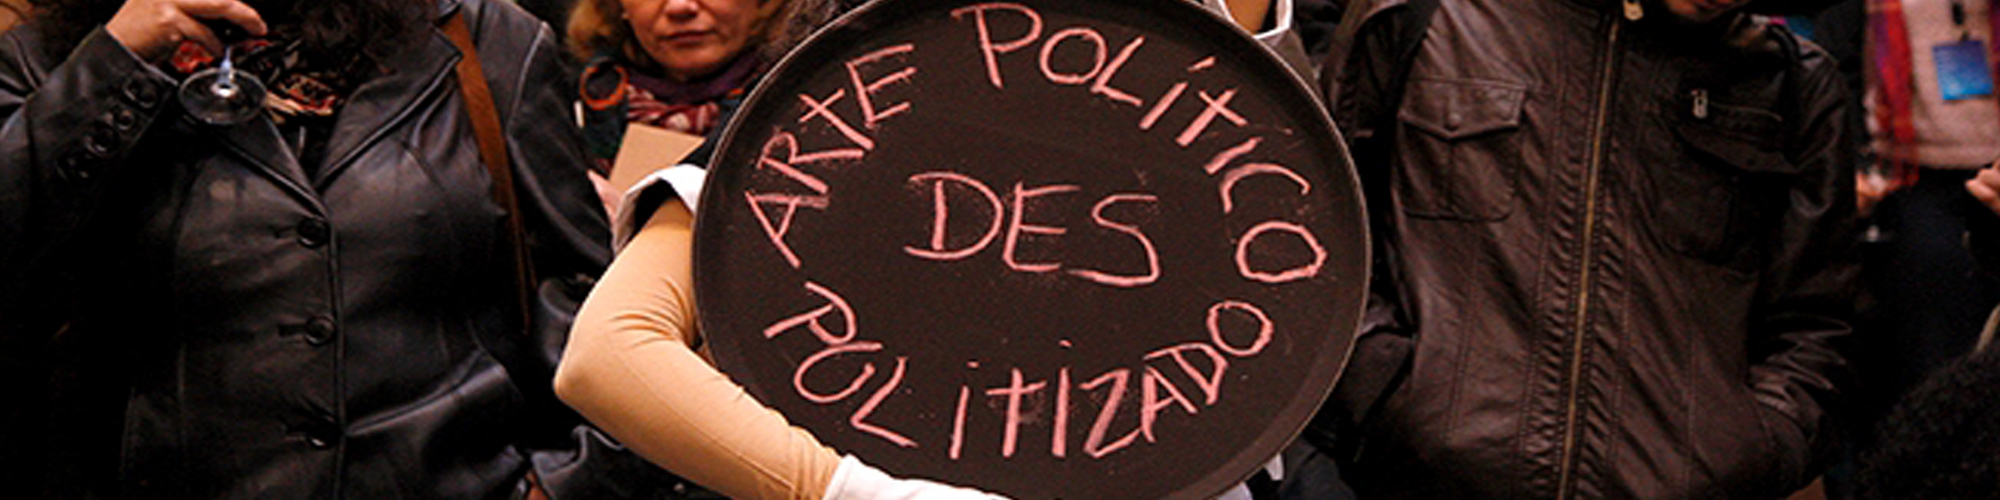 ARTE POLÍTICO
DES
POLITIZADO